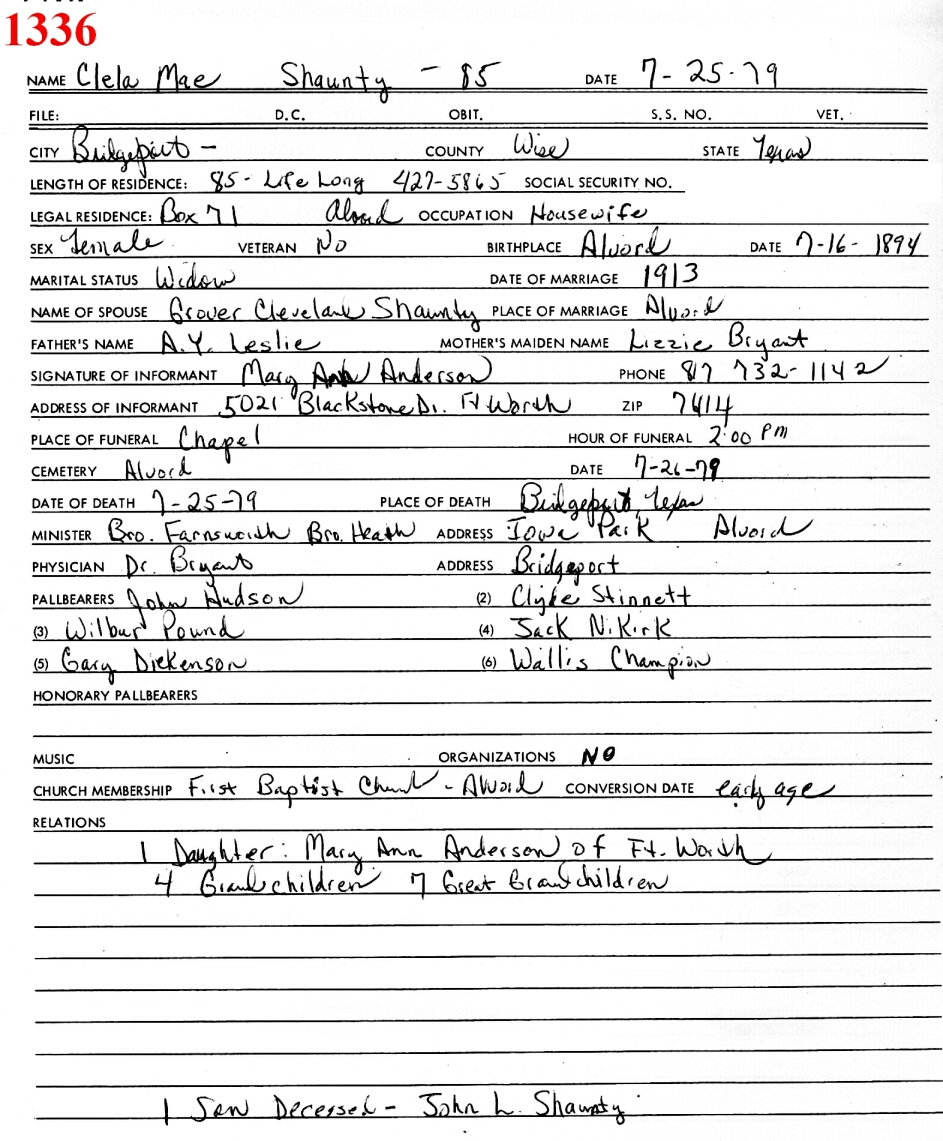 1336
NAME Clela Mae Shaunty - 85 DATE 7-25-79
FILE: D.C. OBIT. S.S. NO. VET.
CITY Bridgeport - COUNTY Wise STATE Texas
LENGTH OF RESIDENCE: 85 - Life Long 427-5865 SOCIAL SECURITY NO.
LEGAL RESIDENCE: Box 71 Alvord OCCUPATION Housewife
SEX Female VETERAN No BIRTHPLACE Alvord DATE 7-16-1894
MARITAL STATUS Widow DATE OF MARRIAGE 1913
NAME OF SPOUSE Grover Cleveland Shaunty PLACE OF MARRIAGE Alvord
FATHER'S NAME A.Y. Leslie MOTHER'S MAIDEN NAME Lizzie Bryant
SIGNATURE OF INFORMANT Mary Ann Anderson PHONE 817 732-1142
ADDRESS OF INFORMANT 5021 Blackstone Dr. Ft Worth ZIP 7614
PLACE OF FUNERAL Chapel HOUR OF FUNERAL 2:00 PM
CEMETERY Alvord DATE 7-26-79
DATE OF DEATH 7-25-79 PLACE OF DEATH Bridgeport, Texas
MINISTER Bro. Farnsworth Bro. Heath ADDRESS Iowa Park Alvord
PHYSICIAN Dr. Bryant ADDRESS Bridgeport
PALLBEARERS John Hudson (2) Clyde Stinnett
(3) Wilbur Pound (4) Jack Nikirk
(5) Gary Dickenson (6) Wallis Champion
HONORARY PALLBEARERS
MUSIC ORGANIZATIONS NO
CHURCH MEMBERSHIP First Baptist Church - Alvord CONVERSION DATE early age
RELATIONS
1 Daughter: Mary Ann Anderson of Ft. Worth
4 Grandchildren 7 Great Grandchildren
1 Son Decessed - John L. Shaunty